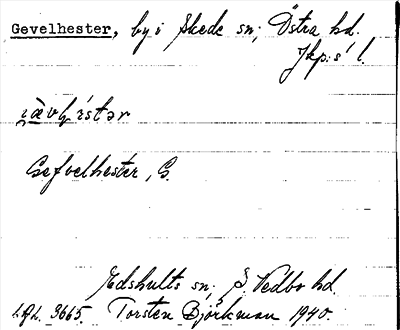 Gevelhester, by i Skede sn; Östra hd.
Jkp:s l.
Gefvelhester, G.
Edshults sn; S. Vedbo hd.
3665. Torsten Björkman 1940.